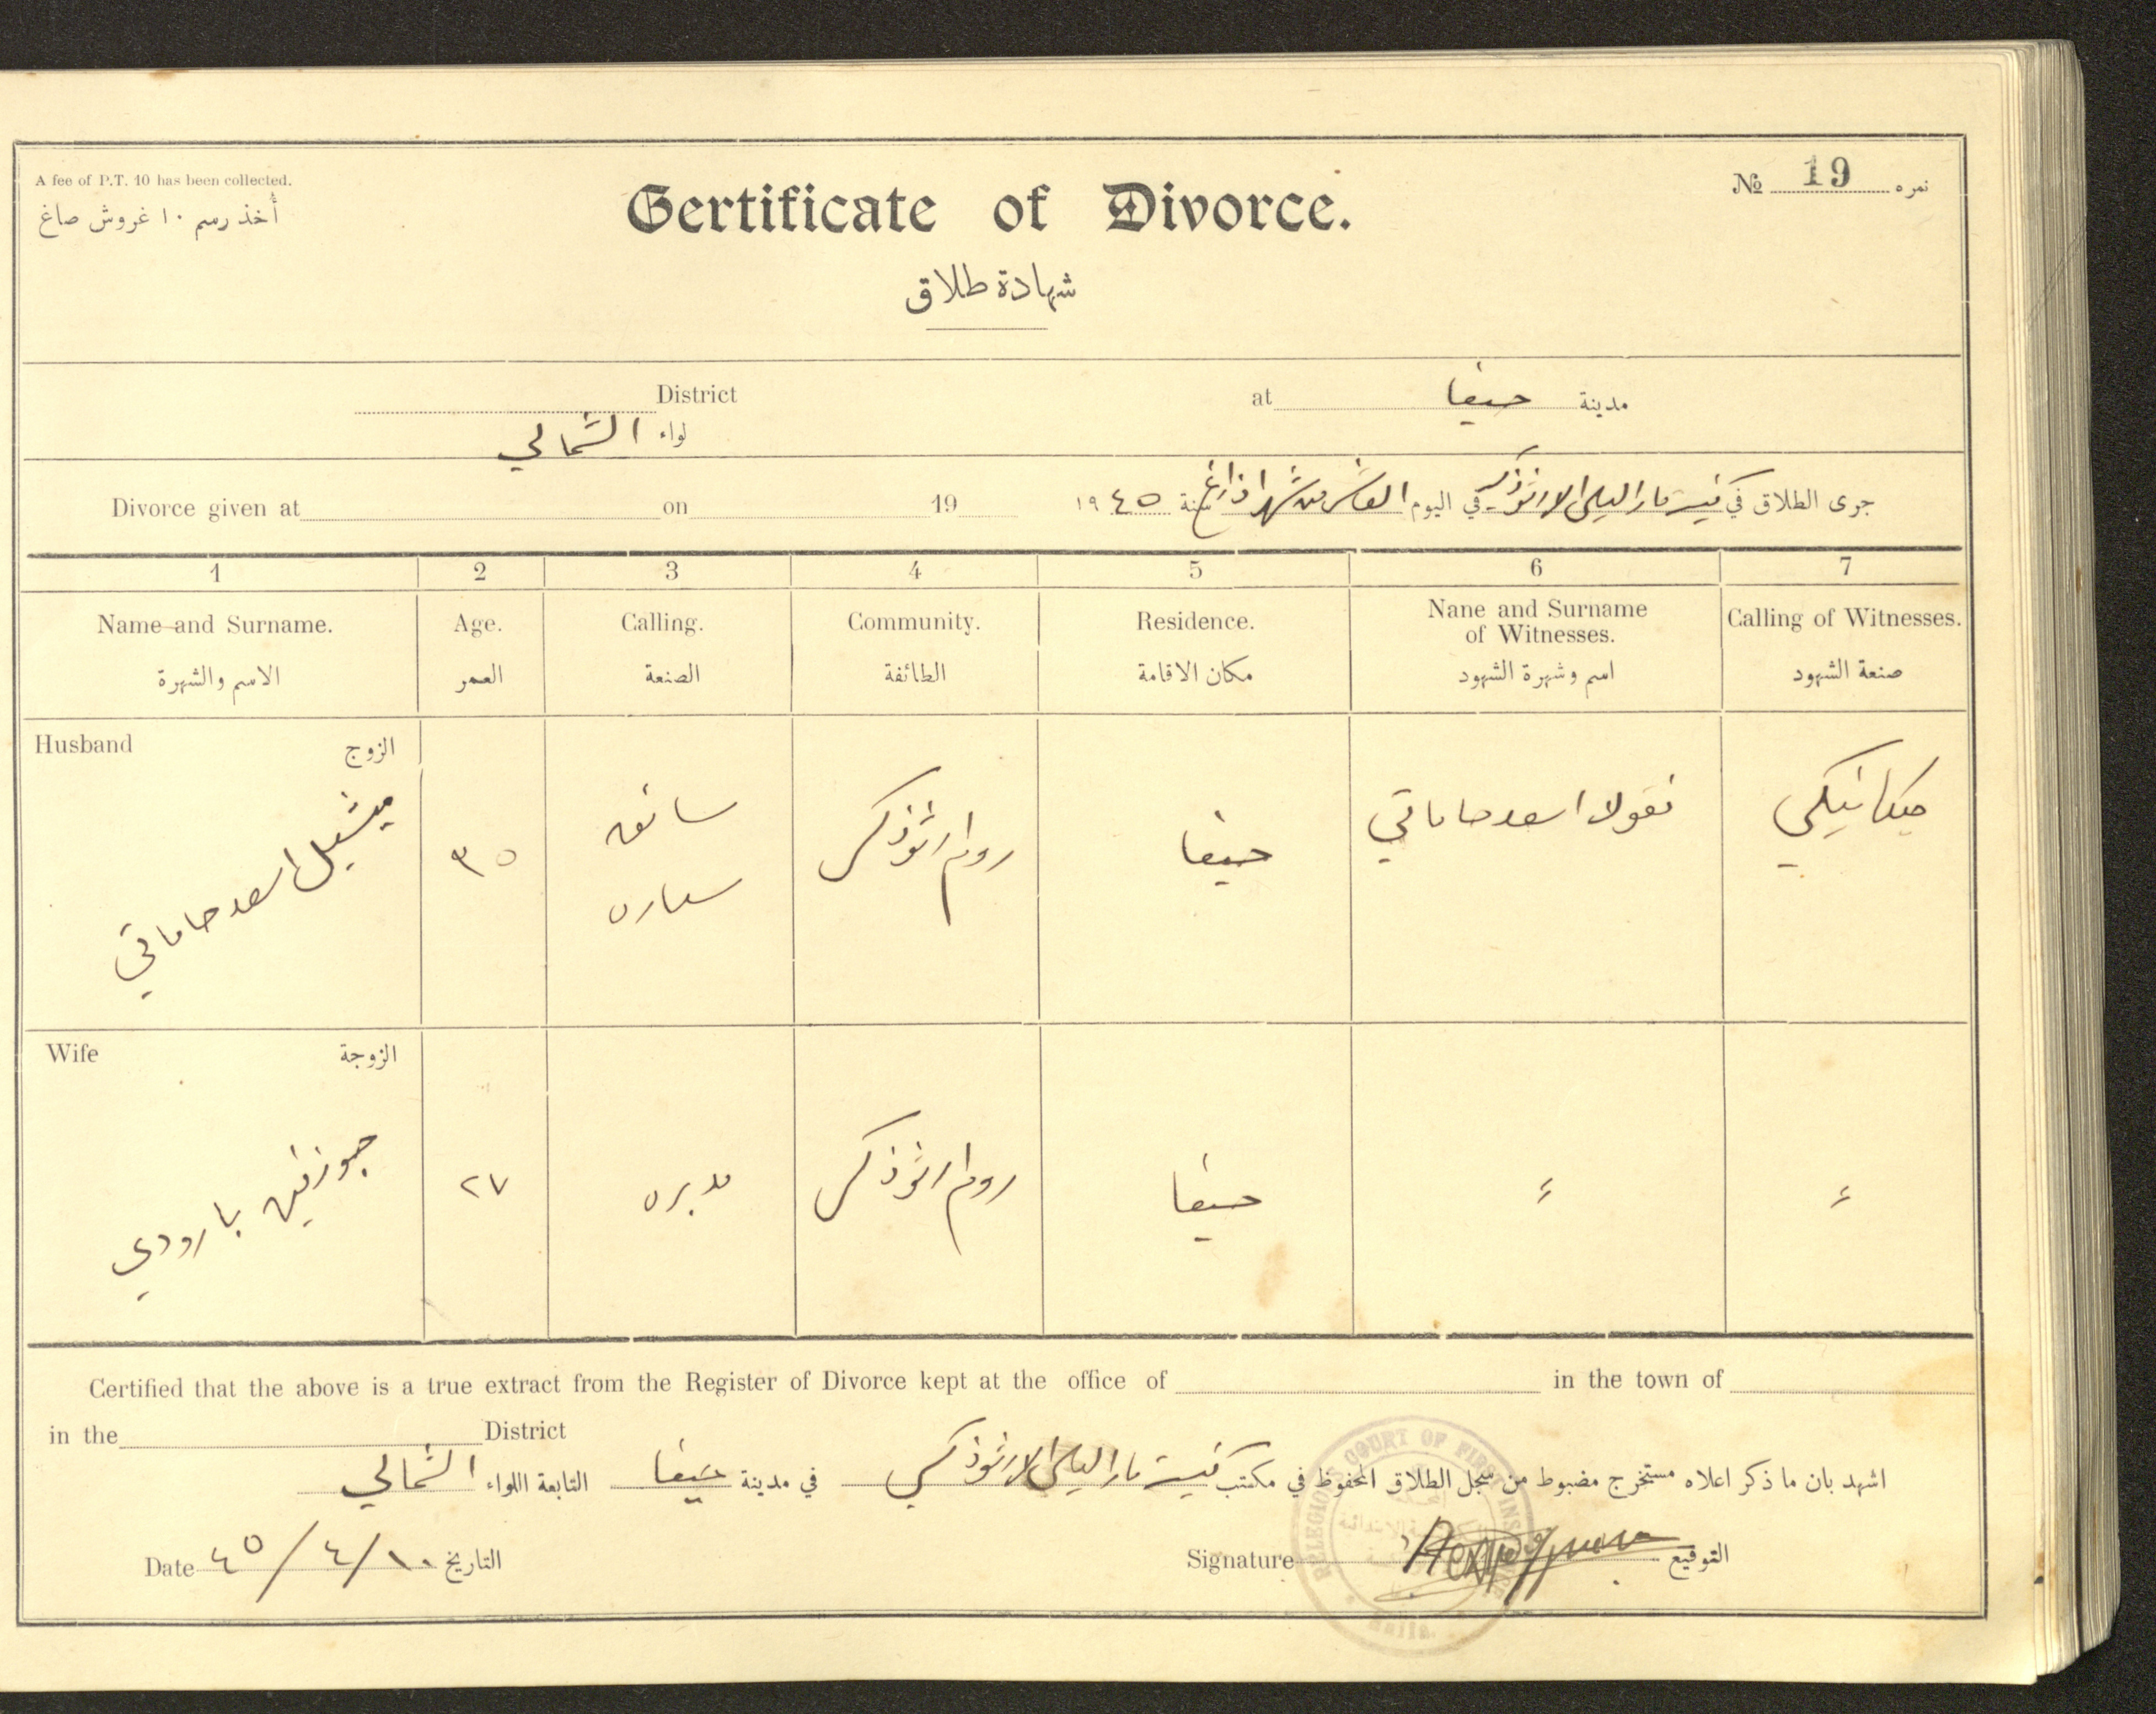 A fee of P.T. 10 has been collected.
أخذ رسم ١٠ غروش صاغ
№ 19 نمره
Certificate of Divorce.
شهادة طلاق
District
لواء الشمالي
at مدينة حيفا
Divorce given at on 19
جرى الطلاق في كنيسة مار الياس الارثوذكسية في اليوم العاشر من شهر اذار سنة ١٩٤٥
1 2 3 4 5 6 7
Name and Surname. Age. Calling. Community. Residence. Nane and Surname of Witnesses. Calling of Witnesses.
الاسم والشهرة العمر الصنعة الطائفة مكان الاقامة اسم وشهرة الشهود صنعة الشهود
Husband الزوج
ميشيل اسعد حاماتي ٣٥ سائق سياره روم ارثوذكس حيفا نقولا اسعد حاماتي ميكانيكي
Wife الزوجة
جوزفين بارودي ٢٧ مدبره روم ارثوذكس حيفا
Certified that the above is a true extract from the Register of Divorce kept at the office of in the town of
in the District
اشهد بان ما ذكر اعلاه مستخرج مضبوط من سجل الطلاق المحفوظ في مكتب كنيسة مار الياس الارثوذكسي في مدينة حيفا التابعة اللواء الشمالي
Date ٤٥/٤/١٠ التاريخ
Signature التوقيع
RELEGIOUS COURT OF FIRST INS
Haifa.